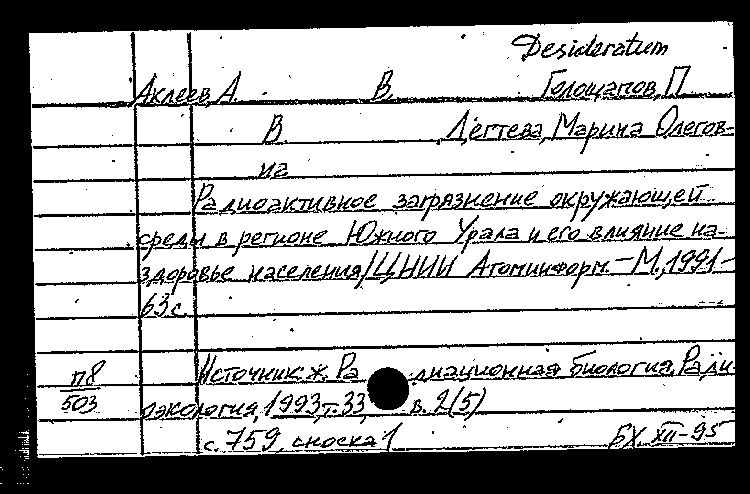 Desideratum
Аклеев А. В. Голощапов, П
В. Дегтева, Марина Олегов-
на
Радиоактивное загрязнение окружающей
среды в регионе Южного Урала и его влияние на
здоровье населения/ЦНИИ Атоминформ.–М.,1991–
63 с.
Источник: ж. Радиационная биология, Ради-
п8
503
оэкология, 1993, т. 33, в. 2(5)
с. 759, сноска 1 БХ. XII-95